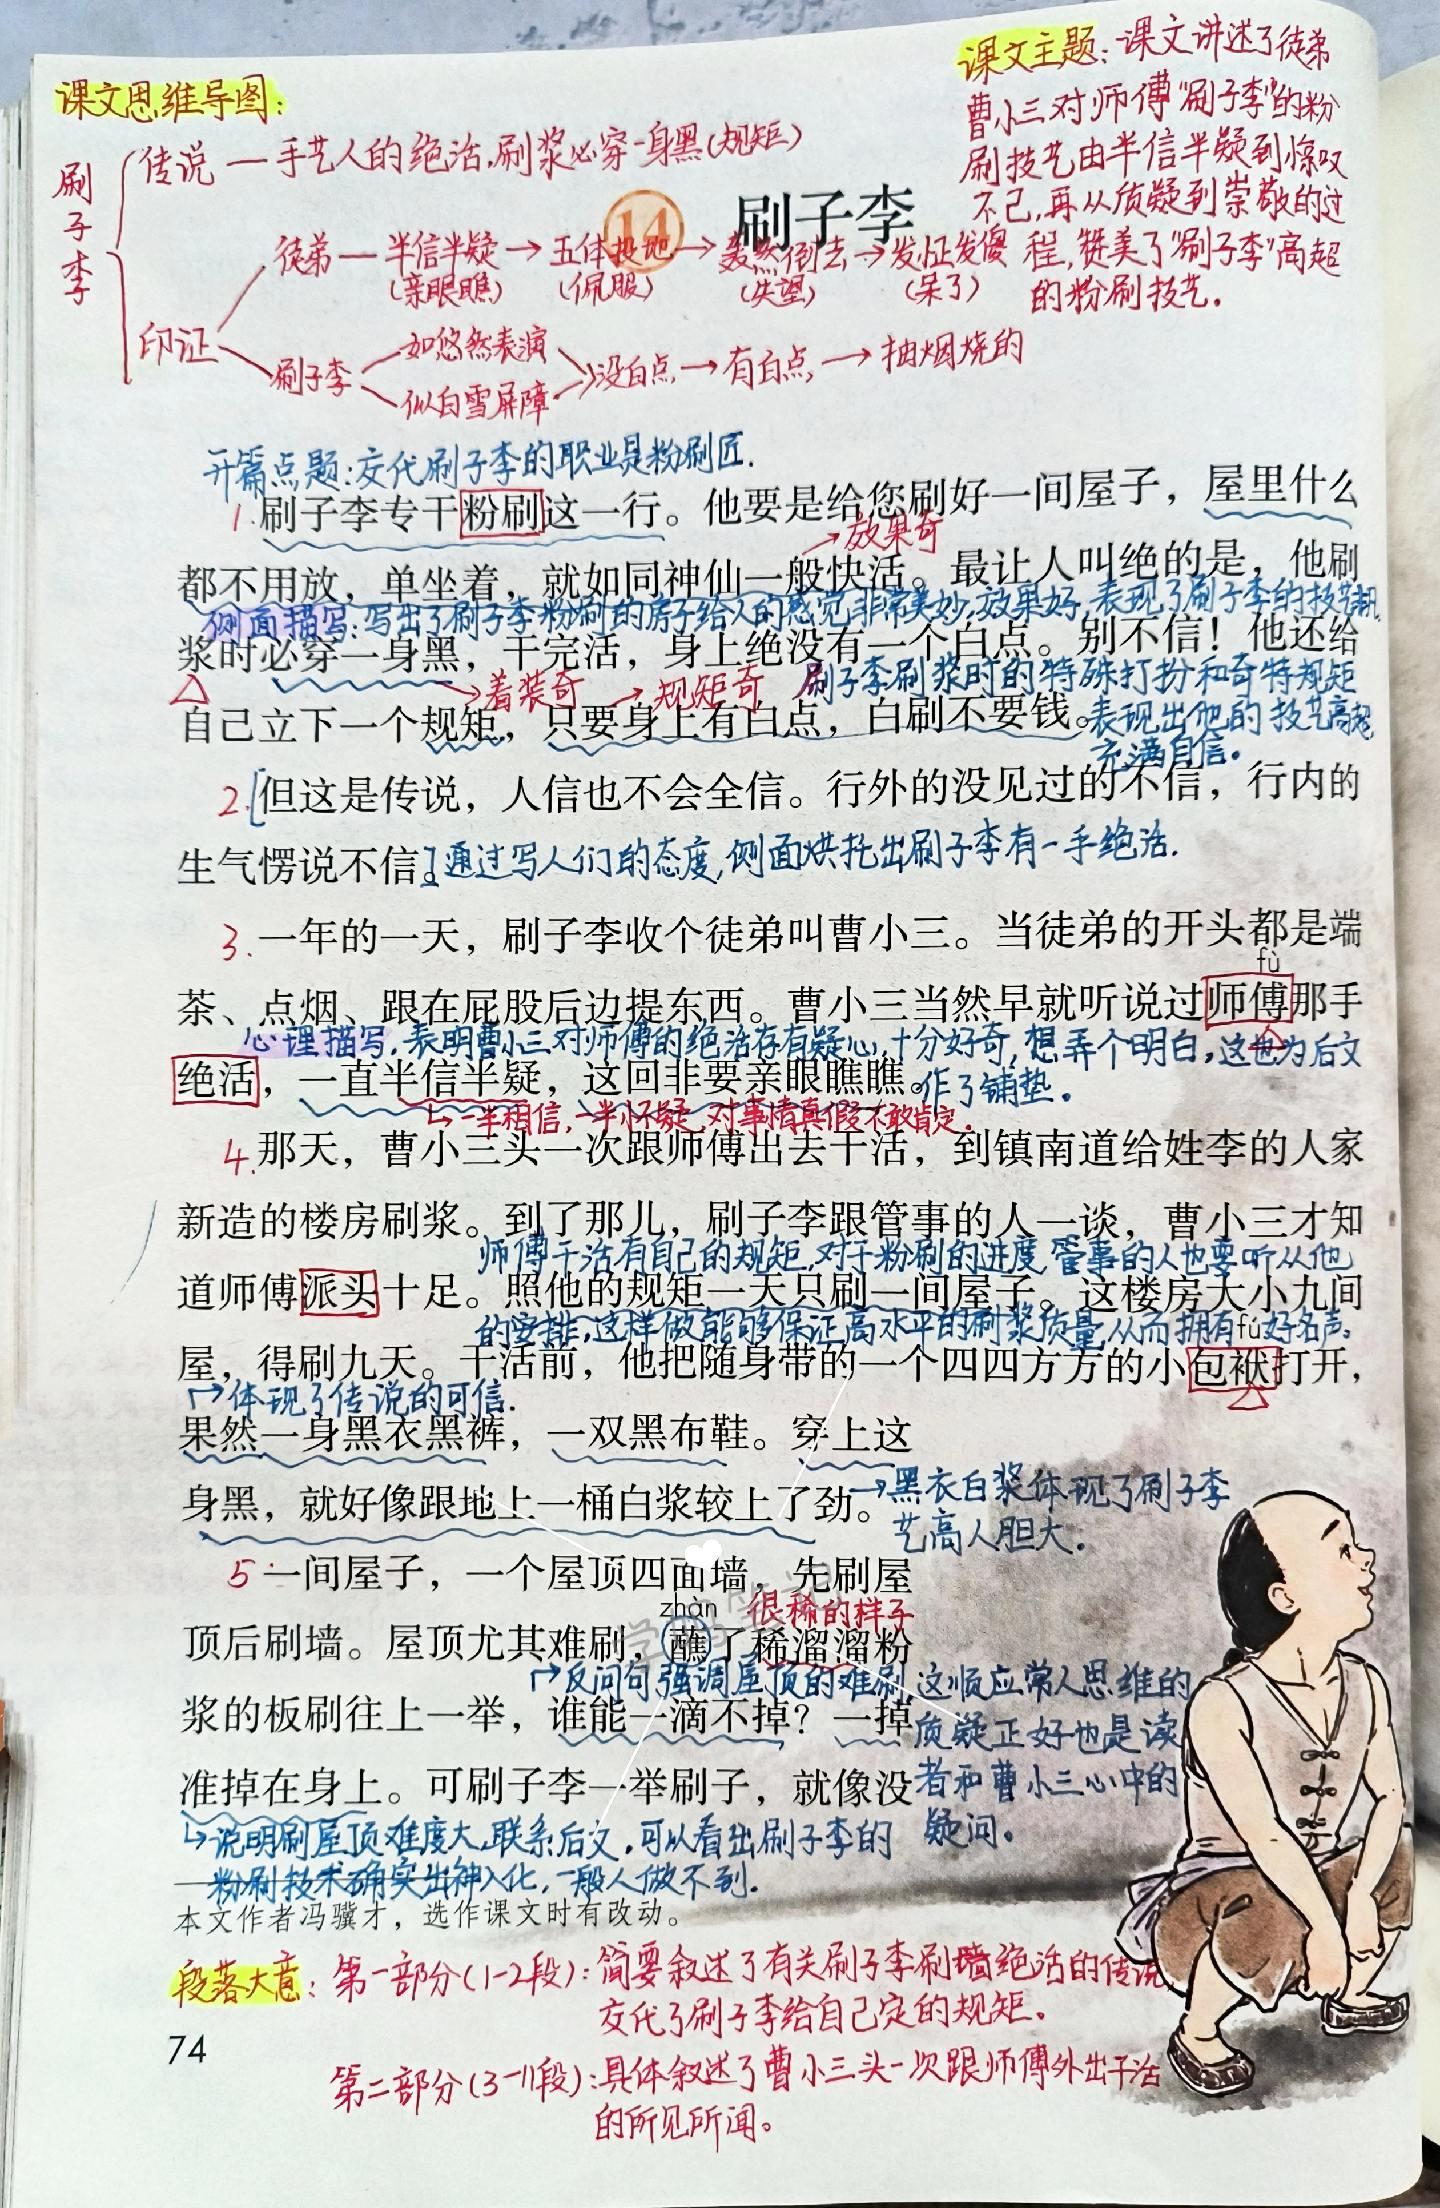 课文思维导图：
课文主题：课文讲述了徒弟
曹小三对师傅“刷子李”的粉
刷技艺由半信半疑到惊叹
不已，再从质疑到崇敬的过
程，赞美了“刷子李”高超
的粉刷技艺．
刷子李
传说 — 手艺人的绝活，刷浆必穿一身黑（规矩）
14 刷子李
徒弟 — 半信半疑 → 五体投地 → 轰然倒去 → 发怔发傻
（亲眼瞧） （佩服） （失望） （呆了）
印证
刷子李 如悠然表演
似白雪屏障 没白点 → 有白点 → 抽烟烧的
开篇点题：交代刷子李的职业是粉刷匠．
1. 刷子李专干粉刷这一行。他要是给您刷好一间屋子，屋里什么
→效果奇
都不用放，单坐着，就如同神仙一般快活。最让人叫绝的是，他刷
侧面描写：写出了刷子李粉刷的房子给人的感觉非常美妙，效果好，表现了刷子李的技艺
浆时必穿一身黑，干完活，身上绝没有一个白点。别不信！他还给
→着装奇 → 规矩奇 刷子李刷浆时的特殊打扮和奇特规矩
自己立下一个规矩，只要身上有白点，白刷不要钱。表现出他的技艺高超
充满自信。
2. 但这是传说，人信也不会全信。行外的没见过的不信，行内的
生气愣说不信。通过写人们的态度，侧面烘托出刷子李有一手绝活．
3. 一年的一天，刷子李收个徒弟叫曹小三。当徒弟的开头都是端
fù
茶、点烟、跟在屁股后边提东西。曹小三当然早就听说过师傅那手
心理描写，表明曹小三对师傅的绝活存有疑心，十分好奇，想弄个明白，这也为后文
绝活，一直半信半疑，这回非要亲眼瞧瞧。作了铺垫。
↳一半相信，一半怀疑，对事情真假不敢肯定。
4. 那天，曹小三头一次跟师傅出去干活，到镇南道给姓李的人家
新造的楼房刷浆。到了那儿，刷子李跟管事的人一谈，曹小三才知
师傅干活有自己的规矩，对于粉刷的进度，管事的人也要听从他
道师傅派头十足。照他的规矩一天只刷一间屋子。这楼房大小九间
的安排，这样做能够保证高水平的刷浆质量，从而拥有好名声。
fú
屋，得刷九天。干活前，他把随身带的一个四四方方的小包袱打开，
→体现了传说的可信．
果然一身黑衣黑裤，一双黑布鞋。穿上这
身黑，就好像跟地上一桶白浆较上了劲。→黑衣白浆体现了刷子李
艺高人胆大．
5 一间屋子，一个屋顶四面墙，先刷屋
zhàn 很稀的样子
学 笔记
顶后刷墙。屋顶尤其难刷，蘸了稀溜溜粉
→反问句强调屋顶的难刷，这顺应常人思维的
浆的板刷往上一举，谁能一滴不掉？一掉
质疑正好也是读
准掉在身上。可刷子李一举刷子，就像没
者和曹小三心中的
疑问。
↳说明刷屋顶难度大，联系后文，可以看出刷子李的
粉刷技术确实出神入化，一般人做不到．
本文作者冯骥才，选作课文时有改动。
段落大意：第一部分（1-2段）：简要叙述了有关刷子李刷墙绝活的传说，
交代了刷子李给自己定的规矩。
74
第二部分（3-11段）：具体叙述了曹小三头一次跟师傅外出干活
的所见所闻。